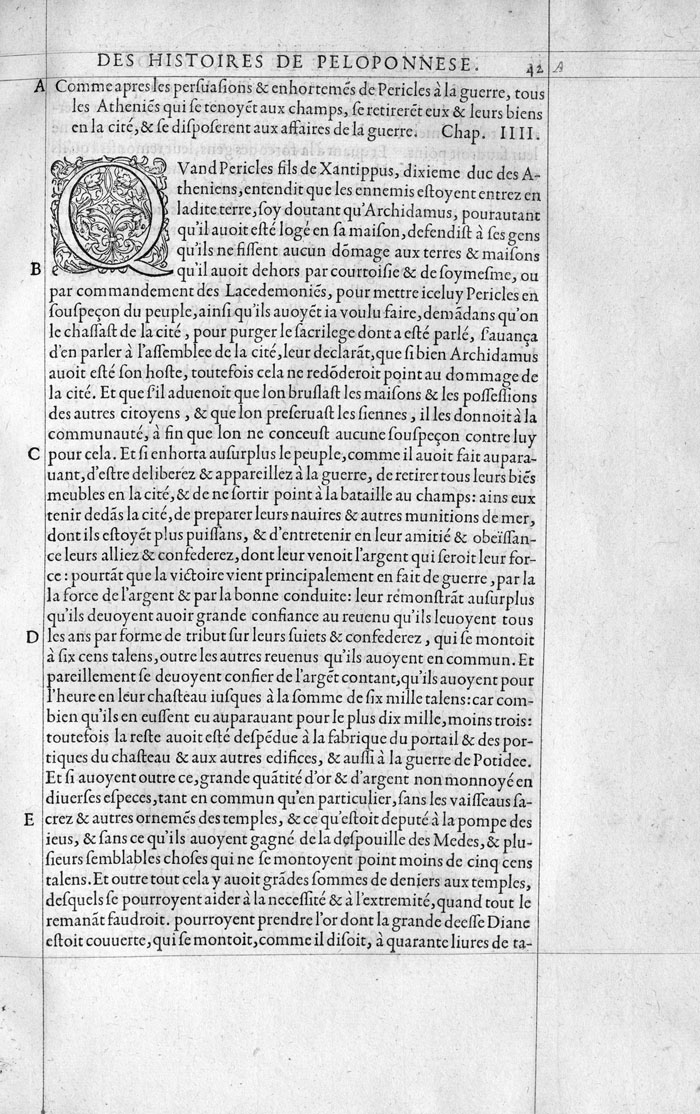 DES HISTOIRES DE PELOPONNESE. 42 A
A Comme apres les persuasions & enhortemēs de Pericles à la guerre, tous
les Atheniēs qui se tenoyēt aux champs, se retirerēt eux & leurs biens
en la cité, & se disposerent aux affaires de la guerre. Chap. IIII.
QVand Pericles fils de Xantippus, dixieme duc des A-
theniens, entendit que les ennemis estoyent entrez en
ladite terre, soy doutant qu'Archidamus, pourautant
qu'il auoit esté logé en sa maison, defendist à ses gens
qu'ils ne fissent aucun dōmage aux terres & maisons
B qu'il auoit dehors par courtoisie & de soymesme, ou
par commandement des Lacedemoniēs, pour mettre iceluy Pericles en
souspeçon du peuple, ainsi qu'ils auoyēt ia voulu faire, demādans qu'on
le chassast de la cité, pour purger le sacrilege dont a esté parlé, s'auança
d'en parler à l'assemblee de la cité, leur declarāt, que si bien Archidamus
auoit esté son hoste, toutefois cela ne redōderoit point au dommage de
la cité. Et que s'il aduenoit que lon bruslast les maisons & les possessions
des autres citoyens, & que lon preseruast les siennes, il les donnoit à la
communauté, à fin que lon ne conceust aucune souspeçon contre luy
C pour cela. Et si enhorta ausurplus le peuple, comme il auoit fait aupara-
uant, d'estre deliberez & appareillez à la guerre, de retirer tous leurs biēs
meubles en la cité, & de ne sortir point à la bataille au champs: ains eux
tenir dedās la cité, de preparer leurs nauires & autres munitions de mer,
dont ils estoyēt plus puissans, & d'entretenir en leur amitié & obeïssan-
ce leurs alliez & confederez, dont leur venoit l'argent qui seroit leur for-
ce: pourtāt que la victoire vient principalement en fait de guerre, par la
la force de l'argent & par la bonne conduite: leur remonstrāt ausurplus
qu'ils deuoyent auoir grande confiance au reuenu qu'ils leuoyent tous
D les ans par forme de tribut sur leurs suiets & confederez, qui se montoit
à six cens talens, outre les autres reuenus qu'ils auoyent en commun. Et
pareillement se deuoyent confier de l'argēt contant, qu'ils auoyent pour
l'heure en leur chasteau iusques à la somme de six mille talens: car com-
bien qu'ils en eussent eu auparauant pour le plus dix mille, moins trois:
toutefois la reste auoit esté despēdue à la fabrique du portail & des por-
tiques du chasteau & aux autres edifices, & aussi à la guerre de Potidee.
Et si auoyent outre ce, grande quātité d'or & d'argent non monnoyé en
diuerses especes, tant en commun qu'en particulier, sans les vaisseaus sa-
E crez & autres ornemēs des temples, & ce qu'estoit deputé à la pompe des
ieus, & sans ce qu'ils auoyent gagné de la despouille des Medes, & plu-
sieurs semblables choses qui ne se montoyent point moins de cinq cens
talens. Et outre tout cela y auoit grādes sommes de deniers aux temples,
desquels se pourroyent aider à la necessité & à l'extremité, quand tout le
remanāt faudroit. pourroyent prendre l'or dont la grande deesse Diane
estoit couuerte, qui se montoit, comme il disoit, à quarante liures de ta-